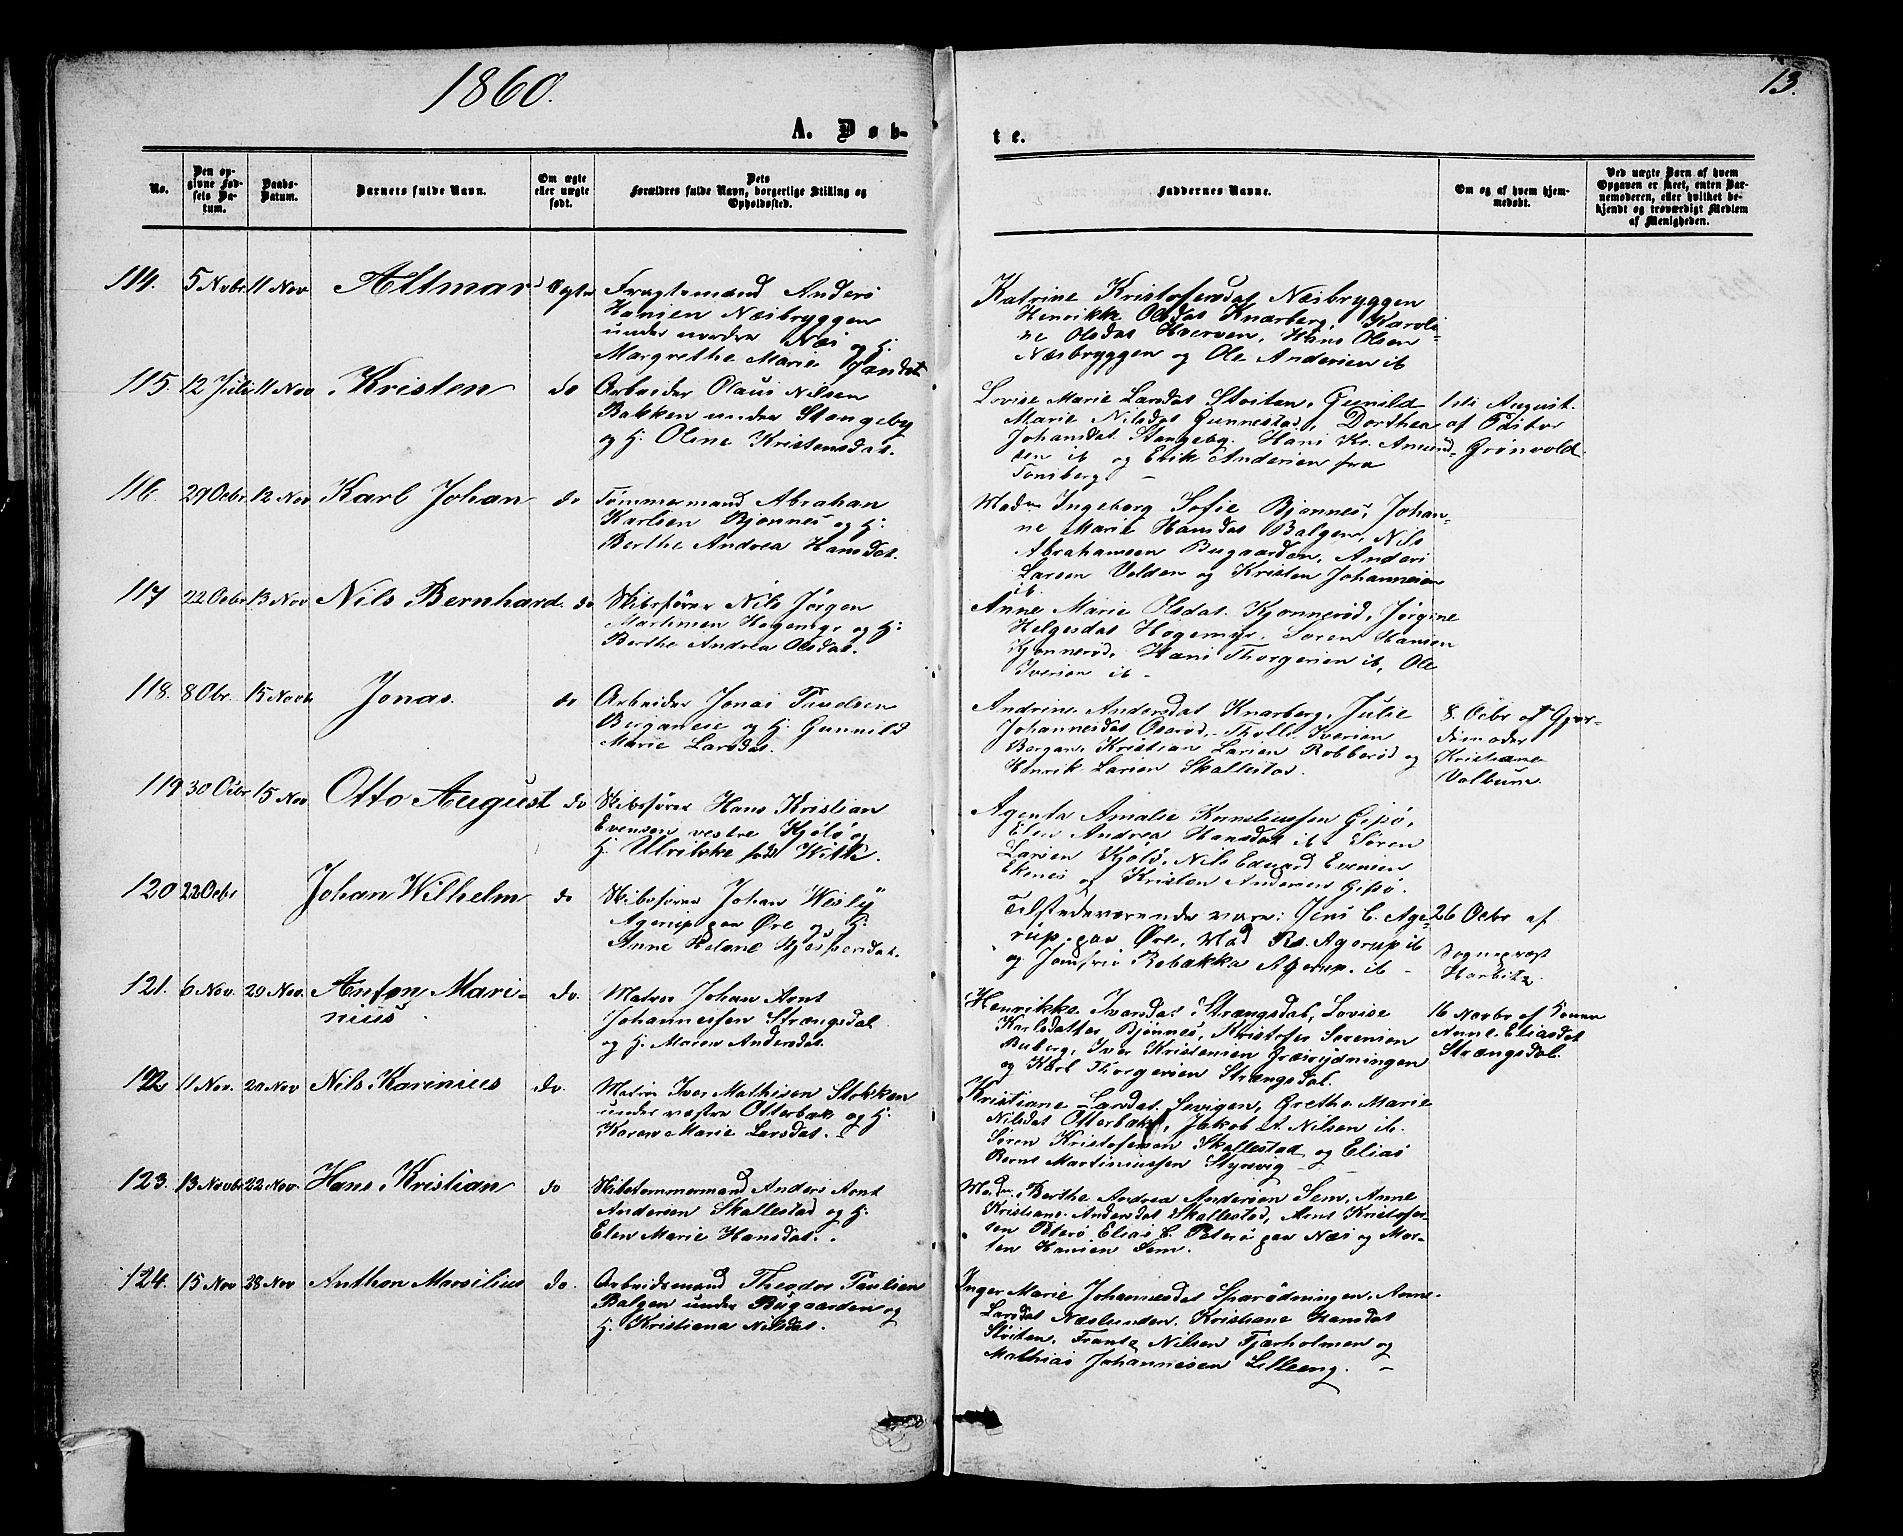 1860.
13.
A. Døb-
te.
No.
Den op-
givne Fød-
sels Da-
tum.
Daabs-
Datum.
Barnets fulde Navn.
Om ægte
eller uægte
født.
Dets
Forældres fulde Navn, borgerlige Stilling og
Opholdssted.
Faddernes Navne.
Om og af hvem hjem-
medøbt.
Ved uægte Børn af hvem
Opgaven er skeet, enten Bar-
nemoderen, eller hvilket be-
kjendt og troværdigt Medlem
af Menigheden.
114. 5 Novbr 11 Nov Altmar Ægte Fragtemand Anders
Hansen Næsbryggen
under nordre Næs og H:
Margrethe Marie
Katrine Kristofersdat Næsbryggen
Henrikke Olsdat Knarberg, Karoli-
ne Olsdat Hverven, Hans Olsen
Næsbryggen og Ole Andersen ib
115. 12 Juli 11 Nov Kristen do Arbeider Olaus Nilsen
Bakken under Stangeby
og H: Oline Kristensdat.
Lovise Marie Larsdat Støiten, Gunild
Marie Nilsdat Gunnestad, Dorthea
Johansdat Stangeby. Hans Kr. Amund-
sen ib og Erik Andersen fra
Tønsberg –
1ste August.
af Pastor
Grønvold.
116. 29 Octbr 12 Nov Karl Johan do Tømmermand Abraham
Karlsen Bjønnes og H:
Berthe Andrea Hansdat.
Madm Ingeborg Sofie Bjønnes, Johan-
ne Marie Hansdat Balgen, Nils
Abrahamsen Bugaarden, Anders
Larsen Volden og Kristen Johannesen
ib.
117 22 Octbr 13 Nov Nils Bernhard. do Skibsfører Nils Jørgen
Martinsen Hogemyr og H:
Berthe Andrea Olsdat.
Anne Marie Olsdat Kjønnerød, Jørgine
Helgesdat Hogemyr, Søren Hansen
Kjønnerød, Hans Thorgersen ib, Ole
Iversen ib –
118. 8 Obr. 15 Novb Jonas. do Arbeider Jonas Paulsen
Berganeie og H: Gunnild
Marie Larsdat.
Andrine Andersdat Knarberg, Julie
Johannesdat Oserød, Tholle Iversen
Bergan, Kristian Larsen Robberød og
Henrik Larsen Skallestad.
8. Octbr af Gjor-
demoder
Kristiane
Valbum
119 30 Octbr 15 Nov Otto August do Skibsfører Hans Kristian
Evensen vestre Kjølø og
H. Ulrikke født Witt.
Agenta Amalie Korneliussen Gipø,
Elen Andrea Hansdat ib Søren
Larsen Kjølø, Nils Eduard Evensen
Ekenes og Kristen Andersen Gipø.
120 22 Octbr Johan Wilhelm do Skibsfører Johan Wesly
Agerup paa Øre og H:
Anne Helene Kjøspersdat.
Tilstedeværende vare: Jens C. Age-
rup paa Øre, Mad Rs. Agerup ib
og Jomfru Rebekka Agerup. ib –
26 Octbr af
Sogneprest
Harbitz.
121. 6 Nov. 20 Nov. Anton Mari-
nius.
do. Matros Johan Arnt
Johannessen Strængsdal
og H: Maren Andersdat.
Henrikke Iversdat Strængsdal, Lovise
Karlsdatter Bjønnes, Kristofer Sørensen
Buberg, Iver Kristensen Græsrydningen
og Karl Thorgersen Strængsdal.
16 Novbr af Konen
Anne Eliasdat
Strængsdal.
122 11 Nov. 20 Nov Nils Karinius do. Matros Iver Mathisen Stokken
under vestre Otterbæk og H:
Karen Marie Larsdat.
Kristiane Larsdat Sevigen, Grethe Marie
Nilsdat Otterbæk, Jakob A Nilsen ib.
Søren Kristofersen Skallestad og Elias
Bernt Martiniussen Styrsvig –
123. 13 Novbr 22 Nov. Hans Kristian do Skibstømmermand Anders Arnt
Andersen Skallestad og H:
Elen Marie Hansdat.
Madm. Berthe Andrea Andersen Sem, Anne
Kristiane Andersdat Skallestad, Arnt Kristofer-
sen Peterø Elias C. Peterø paa Næs og Mor-
ten Hansen Sem.
124. 15 Nov 28 Nov Anthon Marsilius do. Arbeidsmand Theodor Paulsen
Balgen under Bugaarden og
H. Kristiana Nilsdat.
Inger Marie Johannesdat Sparødningen, Anne
Larsdat Næslunden. Kristiane Hansdat
Støiten, Frants Nilsen Fjærholmen og
Mathias Johannesen Lilleeng. –